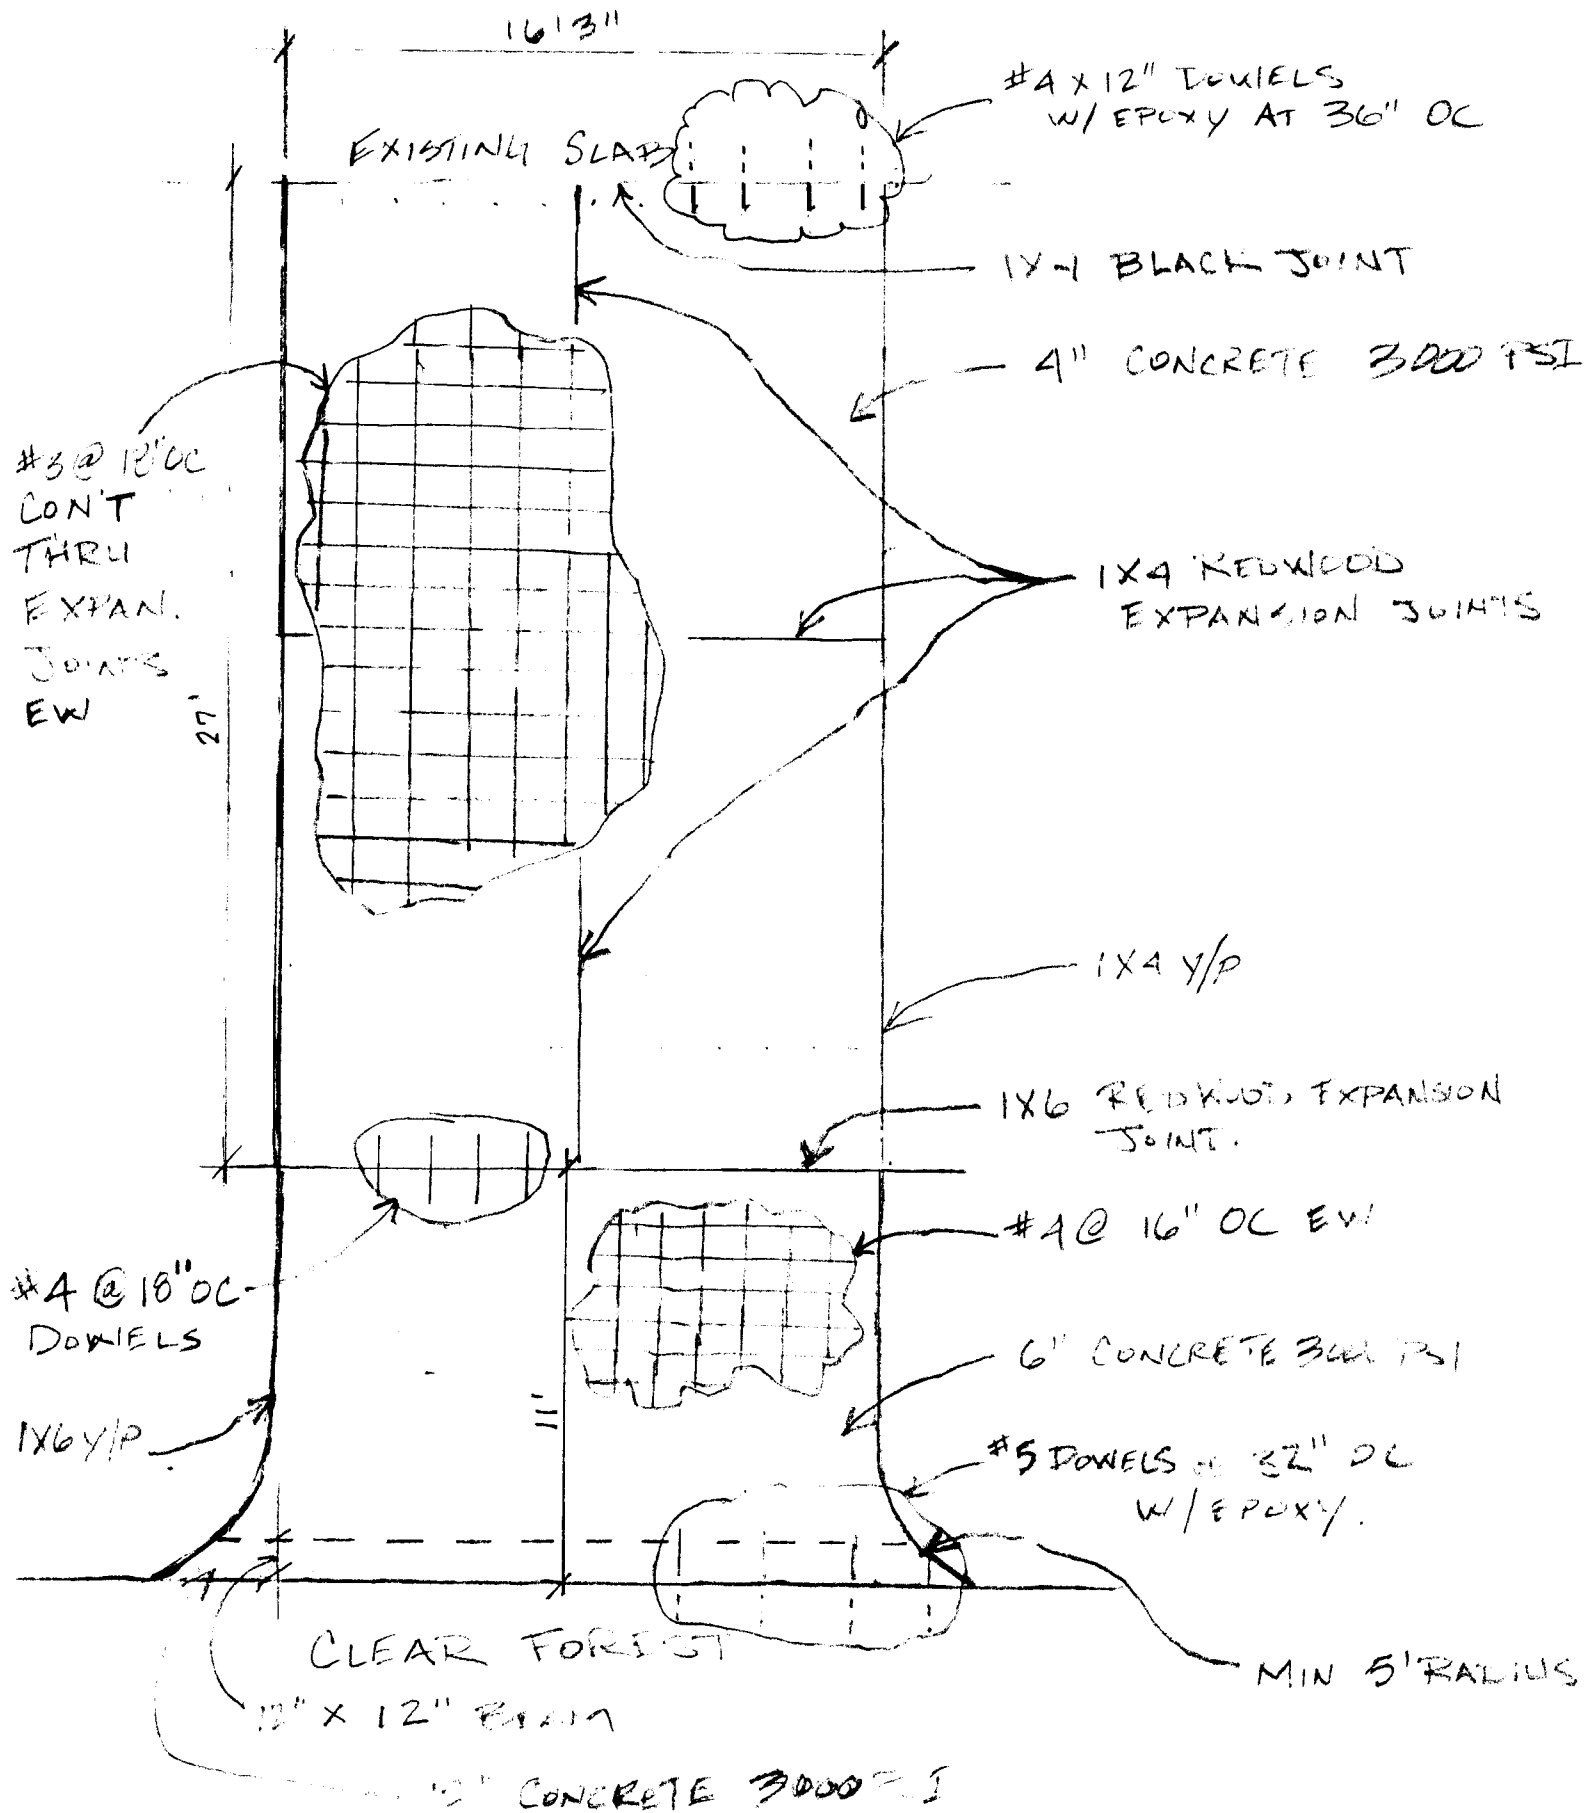 16'3"
#4 x 12" DOWELS
W/ EPOXY AT 36" OC
EXISTING SLAB
1X4 BLACK JOINT
4" CONCRETE 3000 PSI
#3@ 18"OC
CON'T
THRU
EXPAN.
JOINTS
EW
1X4 REDWOOD
EXPANSION JOINTS
27'
1X4 Y/P
1X6 REDWOOD EXPANSION
JOINT.
#4@ 16" OC EW
#4 @ 18"OC
DOWELS
6" CONCRETE 3000 PSI
11'
1X6 Y/P
#5 DOWELS 32" OC
W/ EPOXY.
CLEAR FOREST
MIN 5' RADIUS
12" X 12" BEAM
CONCRETE 3000 PSI